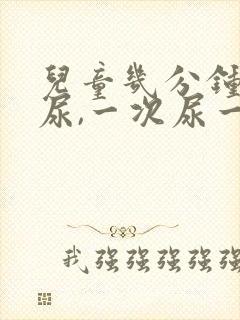 兒童幾分鍾
尿,一次尿一
我强强强强强